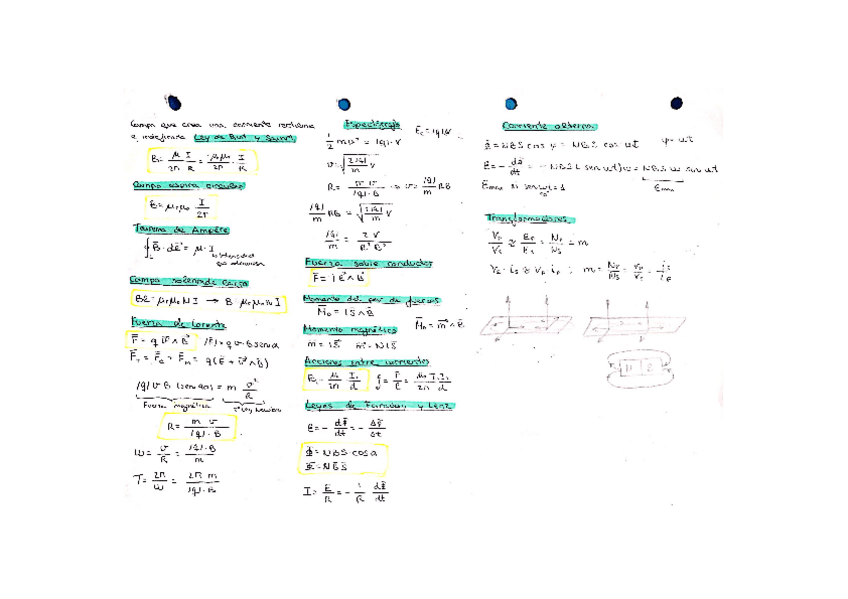 Campo que crea una corriente rectilínea
e indefinida Ley de Biot y Savart
B = μ/2π I/R = μrμ0/2π · I/R
Campo espira circular
B = μrμ0 I/2r
Teorema de Ampère
∮ B · dℓ = μ · I
Campo solenoide larga
Bℓ = μrμ0 N I → B = μrμ0 n I
Fuerza de Lorentz
F = q (v ∧ B) |F| = q v · B sen α
FT = Fe + Fm = q(E + v ∧ B)
|q| v B |sen 90 = m v²/R
Fuerza magnética 2ª Ley Newton
R = m v / |q| · B
ω = v/R = |q| · B / m
T = 2π/ω = 2π m / |q| · B
Espectrógrafo
½ mv² = |q| · V Ec = |q|V
v = √(2|q|/m) V
R = m v / |q| · B → v = |q|/m RB
|q|/m RB = √(2|q|/m) V
|q|/m = 2 V / R² B²
Fuerza sobre conductor
F = I ℓ ∧ B
Momento del par de fuerzas
M0 = I S ∧ B
M0 = m ∧ B
Momento magnético
m = I S m = N I S
Acciones entre corrientes
f = F/ℓ = μ0/2π I₁ I₂/d
Leyes de Faraday y Lenz
ε = - dΦ/dt = - ΔΦ/Δt
Φ = N B S cos α
Φ = N B S
I = ε/R = - 1/R dΦ/dt
Corriente alterna
Φ = N B S cos φ = N B S cos ωt φ = ωt
ε = - dΦ/dt = - N B S (- sen ωt) ω = N B S ω sen ωt
εmax si sen ωt = 1
εmax
Transformadores
Vp/Vs ≈ εp/εs = Np/Ns = m
Vs · is ≈ Vp ip ; m = Np/Ns = Vp/Vs = is/ip